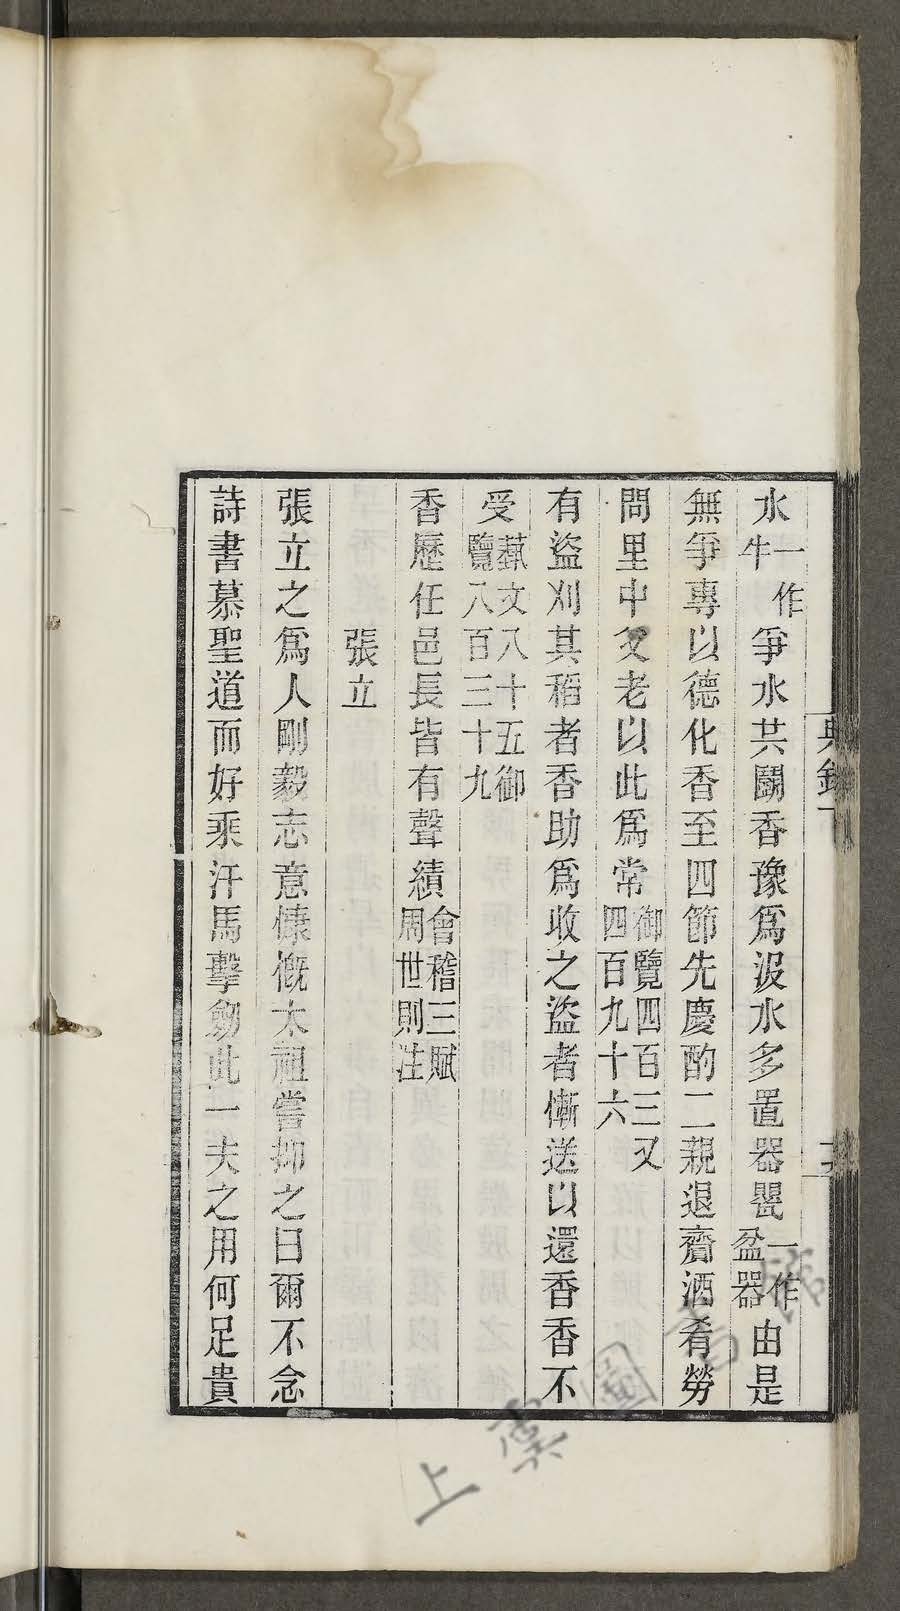 水一作牛爭水共鬭香豫爲汲水多置器甖一作盆器由是
無爭專以德化香至四節先慶酌二親退齎酒肴勞
問里中父老以此爲常御覽四百三又四百九十六
有盜刈其稻者香助爲收之盜者慚送以還香香不
受藝文八十五御覽八百三十九
香歷任邑長皆有聲績會稽三賦周世則注
張立
張立之爲人剛毅志意慷慨太祖嘗抑之曰爾不念
詩書慕聖道而好乘汗馬擊劒此一夫之用何足貴
典錄下
上虞圖書館